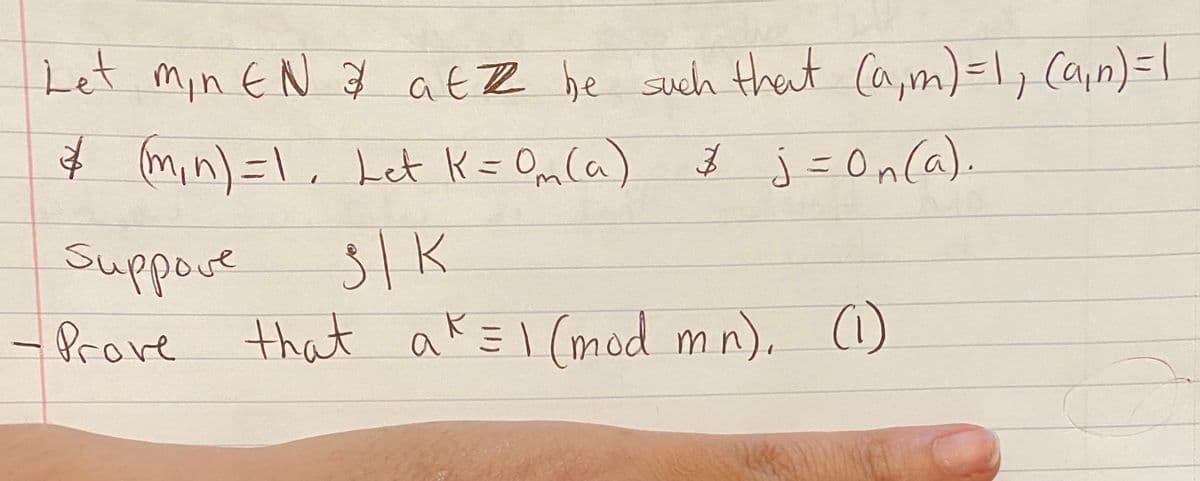 Let m,n ∈ N & a ∈ ℤ be such that (a,m)=1, (a,n)=1
& (m,n)=1. Let K = Om(a) & j = On(a).
Suppose j | K
- Prove that a^K ≡ 1 (mod mn). (1)